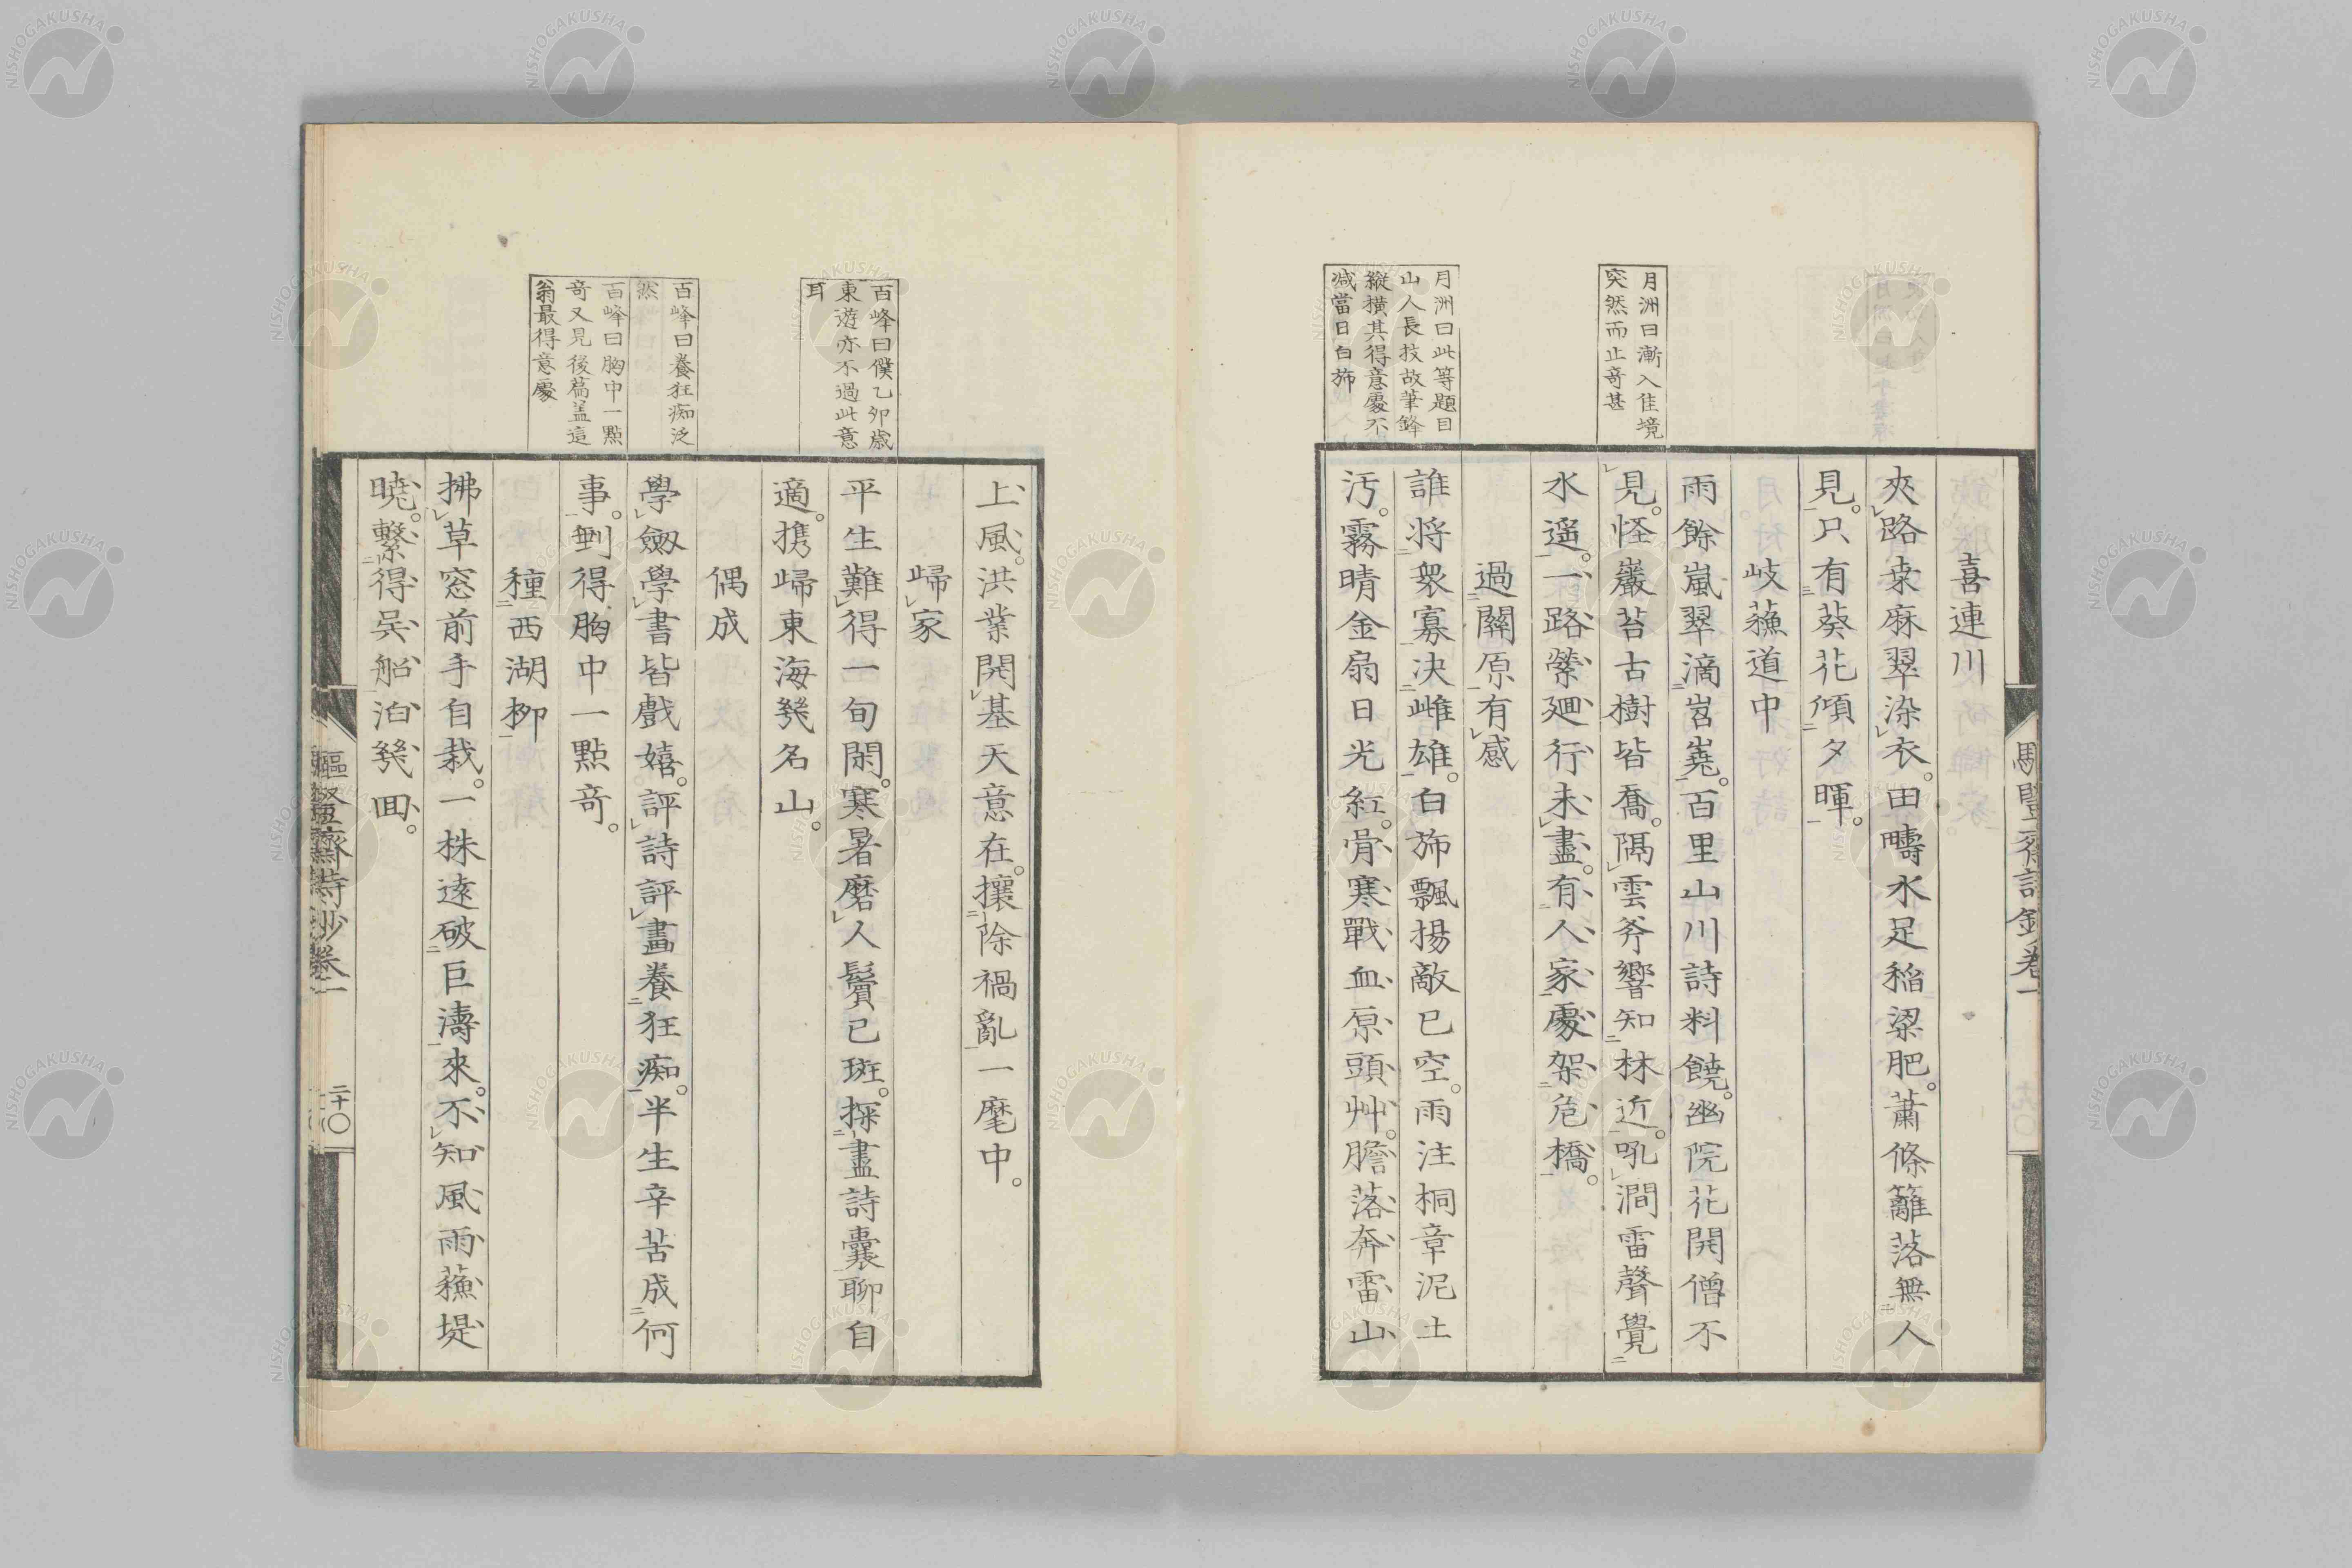 月洲曰漸入佳境
突然而止奇甚
月洲曰此等題目
山人長技故筆鋒
縱橫其得意處不
減當日白斾
喜連川
夾路桒麻翠染衣。田疇水足稻粱肥。蕭條籬落無人
見。只有葵花傾夕暉。
岐蘓道中
雨餘嵐翠滴岧嶤。百里山川詩料饒。幽院花開僧不
見。怪巖苔古樹皆喬。隔雲斧響知林近。吼澗雷聲覺
水遥。一路縈廻行未盡。有人家處架危橋。
過關原有感
誰將衆寡决雌雄。白斾飄揚敵已空。雨注桐章泥土
汚。霧晴金扇日光紅。骨寒戰血原頭艸。膽落奔雷山
百峰曰僕乙夘歲
東遊亦不過此意
耳
百峰曰養狂痴泛
然
百峰曰胸中一點
奇又見後篇盖這
翁最得意處
上風。洪業開基天意在。攘除禍亂一麾中。
歸家
平生難得一旬閑。寒暑磨人鬢已斑。探盡詩囊聊自
適。携歸東海幾名山。
偶成
學劔學書皆戲嬉。評詩評畫養狂痴。半生辛苦成何
事。剩得胸中一點奇。
種西湖柳
拂草窓前手自栽。一株遠破巨濤來。不知風雨蘓堤
曉。繫得吳船泊幾回。
二十
NISHOGAKUSHA